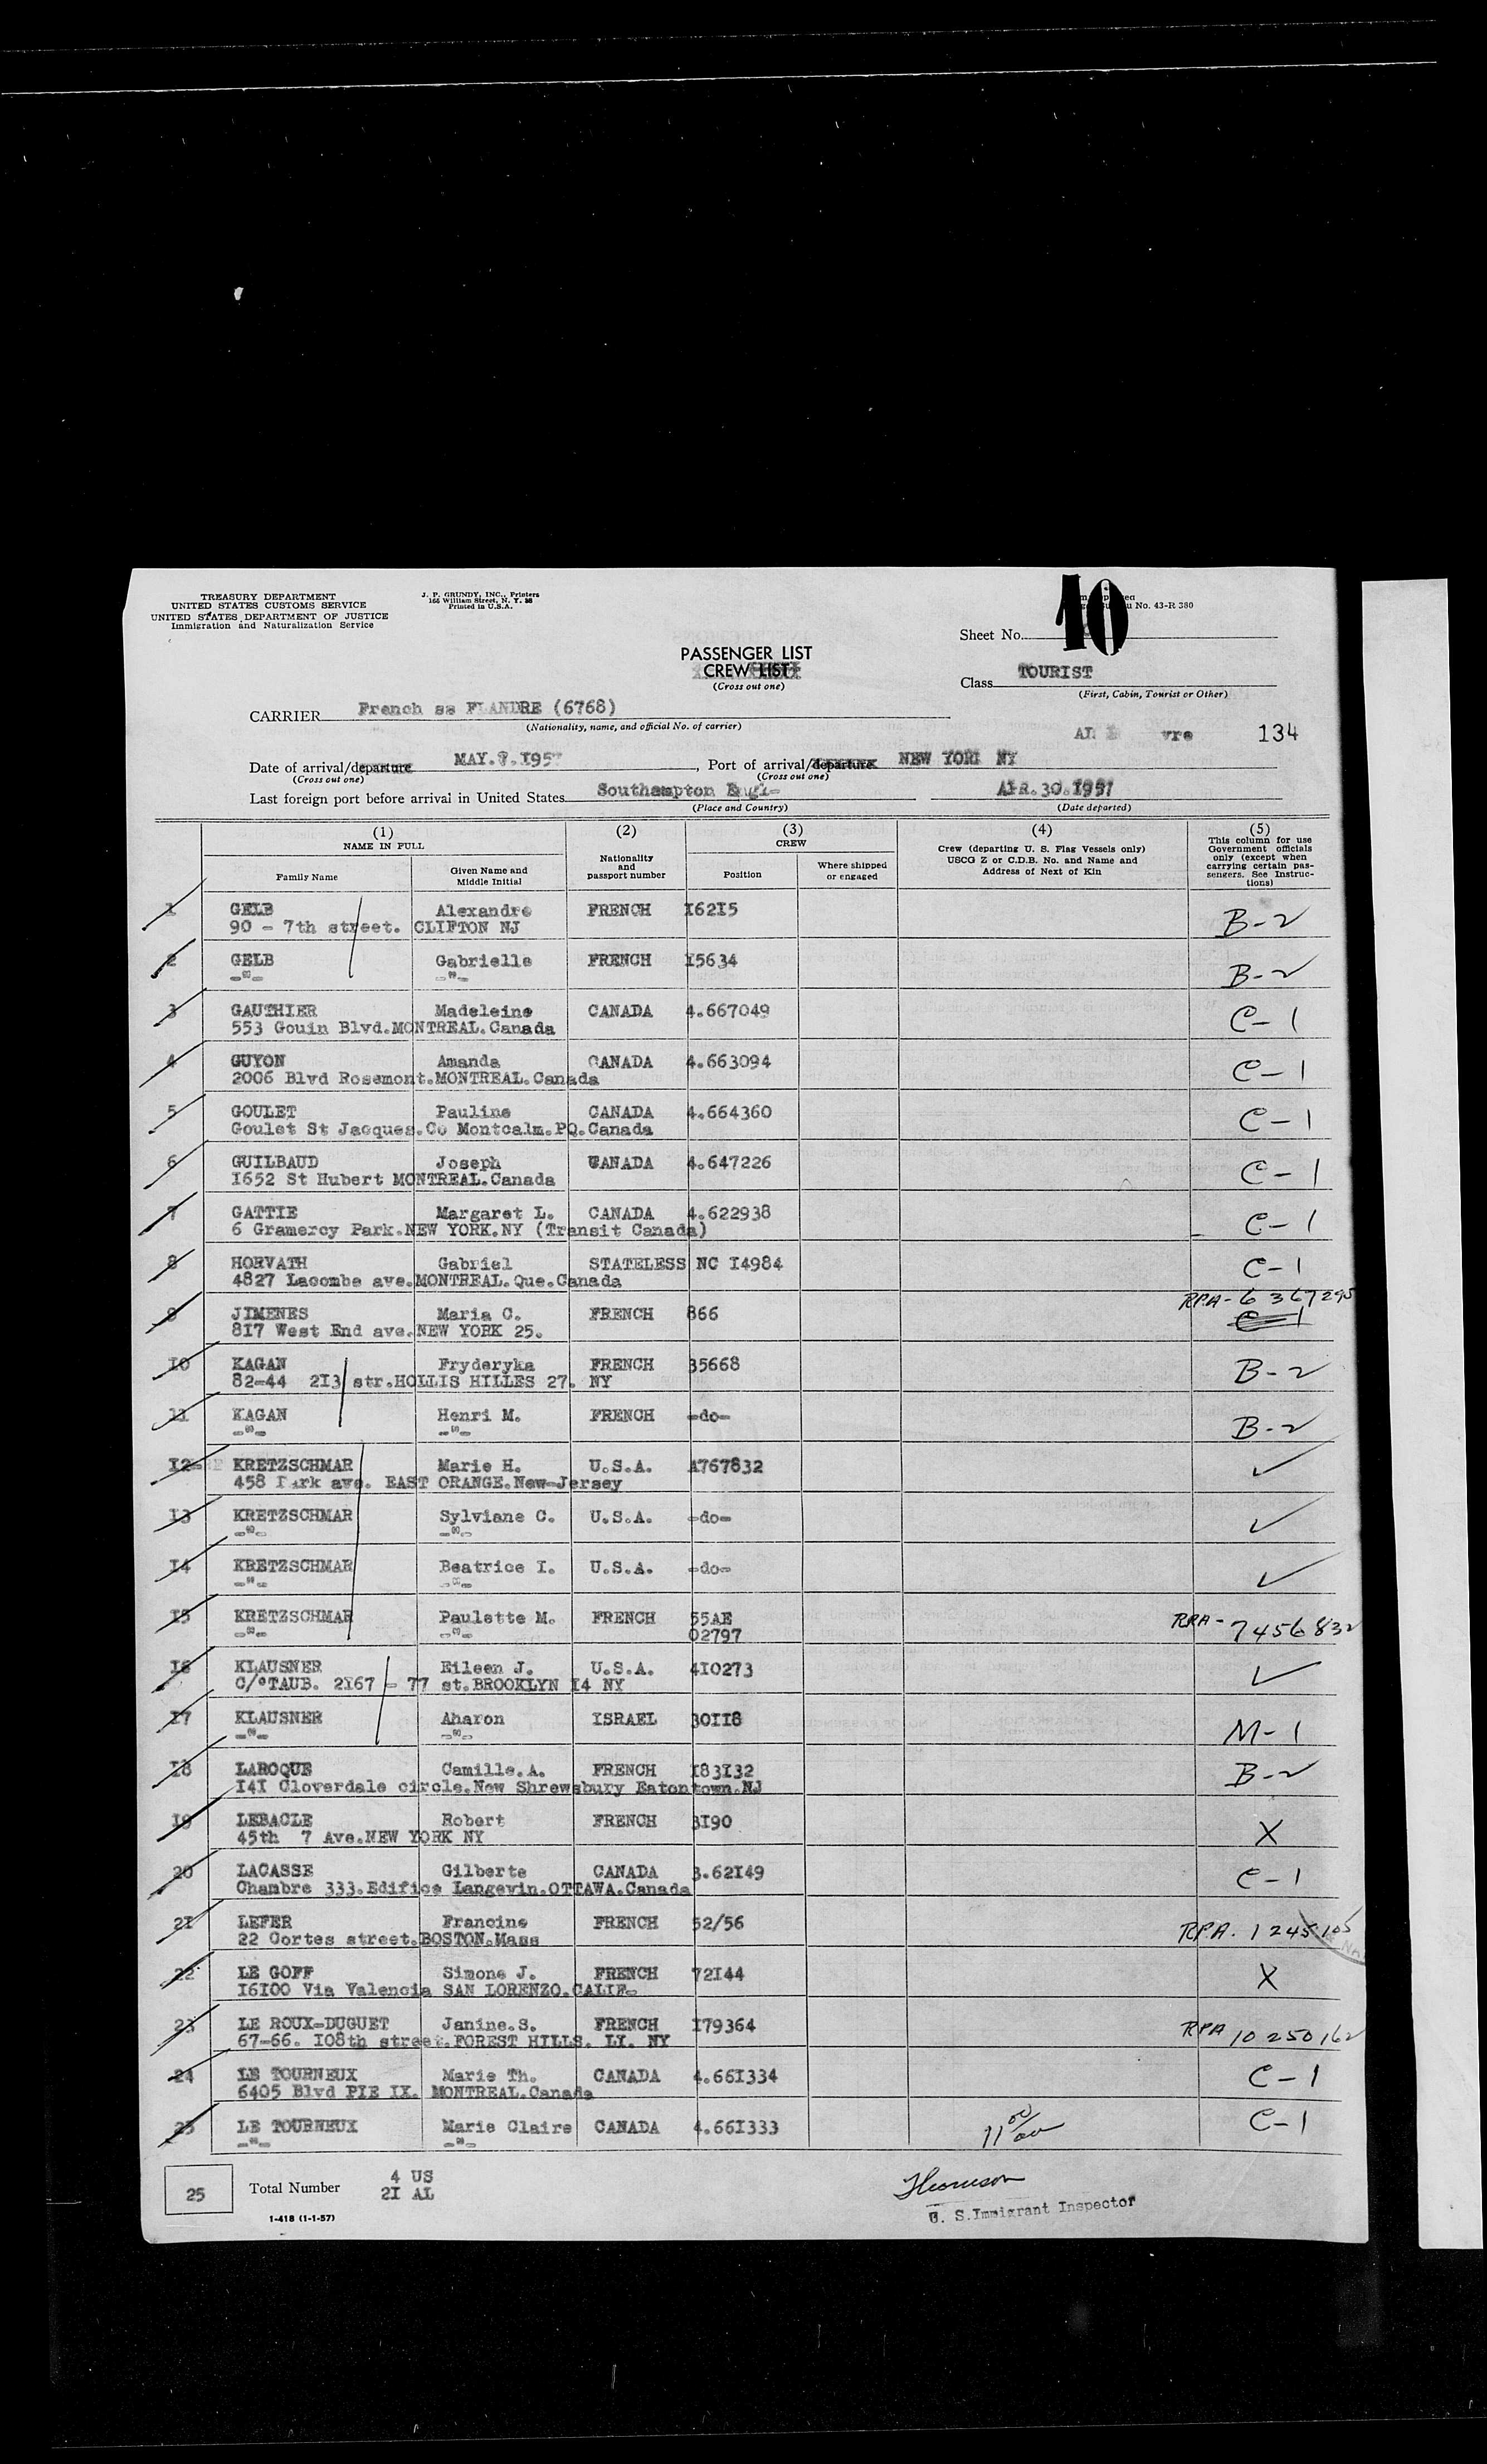 TREASURY DEPARTMENT
UNITED STATES CUSTOMS SERVICE
UNITED STATES DEPARTMENT OF JUSTICE
Immigration and Naturalization Service
J. P. GRUNDY, INC., Printers
166 William Street, N. Y. 38
Printed in U.S.A.
No. 43-R 380
Sheet No. 10
PASSENGER LIST
CREW LIST
(Cross out one)
Class TOURIST
(First, Cabin, Tourist or Other)
CARRIER French ss FLANDRE (6768)
(Nationality, name, and official No. of carrier)
134
Date of arrival/departure MAY.8.1957, Port of arrival/departure NEW YORK NY
(Cross out one) (Cross out one)
Last foreign port before arrival in United States Southampton Engl- APR.30.1957
(Place and Country) (Date departed)
(1) NAME IN FULL
Family Name
Given Name and Middle Initial
(2) Nationality and passport number
(3) CREW
Position
Where shipped or engaged
(4) Crew (departing U. S. Flag Vessels only) USCG Z or C.D.B. No. and Name and Address of Next of Kin
(5) This column for use Government officials only (except when carrying certain passengers. See Instructions)
1 GELB Alexandre FRENCH I62I5 B-2
90 - 7th street. CLIFTON NJ
2 GELB Gabrielle FRENCH I5634 B-2
-"- -"-
3 GAUTHIER Madeleine CANADA 4.667049 C-1
553 Gouin Blvd.MONTREAL.Canada
4 GUYON Amanda CANADA 4.663094 C-1
2006 Blvd Rosemont.MONTREAL.Canada
5 GOULET Pauline CANADA 4.664360 C-1
Goulet St Jacques.Co Montcalm.PQ.Canada
6 GUILBAUD Joseph CANADA 4.647226 C-1
I652 St Hubert MONTREAL.Canada
7 GATTIE Margaret L. CANADA 4.622938 C-1
6 Gramercy Park.NEW YORK.NY (Transit Canada)
8 HORVATH Gabriel STATELESS NC I4984 C-1
4827 Lacombe ave.MONTREAL.Que.Canada
9 JIMENES Maria C. FRENCH 866 RPA-6 367295 C-1
8I7 West End ave.NEW YORK 25.
I0 KAGAN Fryderyka FRENCH 35668 B-2
82-44 2I3 str.HOLLIS HILLES 27. NY
11 KAGAN Henri M. FRENCH -do- B-2
-"- -"-
I2 KRETZSCHMAR Marie H. U.S.A. A767832 ✓
458 Park ave. EAST ORANGE.New-Jersey
I3 KRETZSCHMAR Sylviane C. U.S.A. -do- ✓
-"- -"-
I4 KRETZSCHMAR Beatrice I. U.S.A. -do- ✓
-"- -"-
I5 KRETZSCHMAR Paulette M. FRENCH 55AE RPA-7456832
-"- -"- 02797
I6 KLAUSNER Eileen J. U.S.A. 4I0273 ✓
C/°TAUB. 2I67 - 77 st.BROOKLYN I4 NY
I7 KLAUSNER Aharon ISRAEL 30II8 M-1
-"- -"-
I8 LAROQUE Camille.A. FRENCH I83I32 B-2
I4I Cloverdale circle.New Shrewsbury Eatontown.NJ
I9 LEBACLE Robert FRENCH 3I90 X
45th 7 Ave.NEW YORK NY
20 LACASSE Gilberte CANADA 3.62I49 C-1
Chambre 333.Edifice Langevin.OTTAWA.Canada
2I LEFER Francine FRENCH 52/56 RPA. 1245105
22 Cortes street.BOSTON.Mass
22 LE GOFF Simone J. FRENCH 72I44 X
I6I00 Via Valencia SAN LORENZO.CALIF-
23 LE ROUX-DUGUET Janine.S. FRENCH I79364 RPA 10 250 162
67-66. I08th street.FOREST HILLS. LI. NY
24 LE TOURNEUX Marie Th. CANADA 4.66I334 C-1
6405 Blvd PIE IX. MONTREAL.Canada
25 LE TOURNEUX Marie Claire CANADA 4.66I333 C-1
-"- -"-
25 Total Number 4 US
2I AL
U. S. Immigrant Inspector
1-418 (1-1-57)